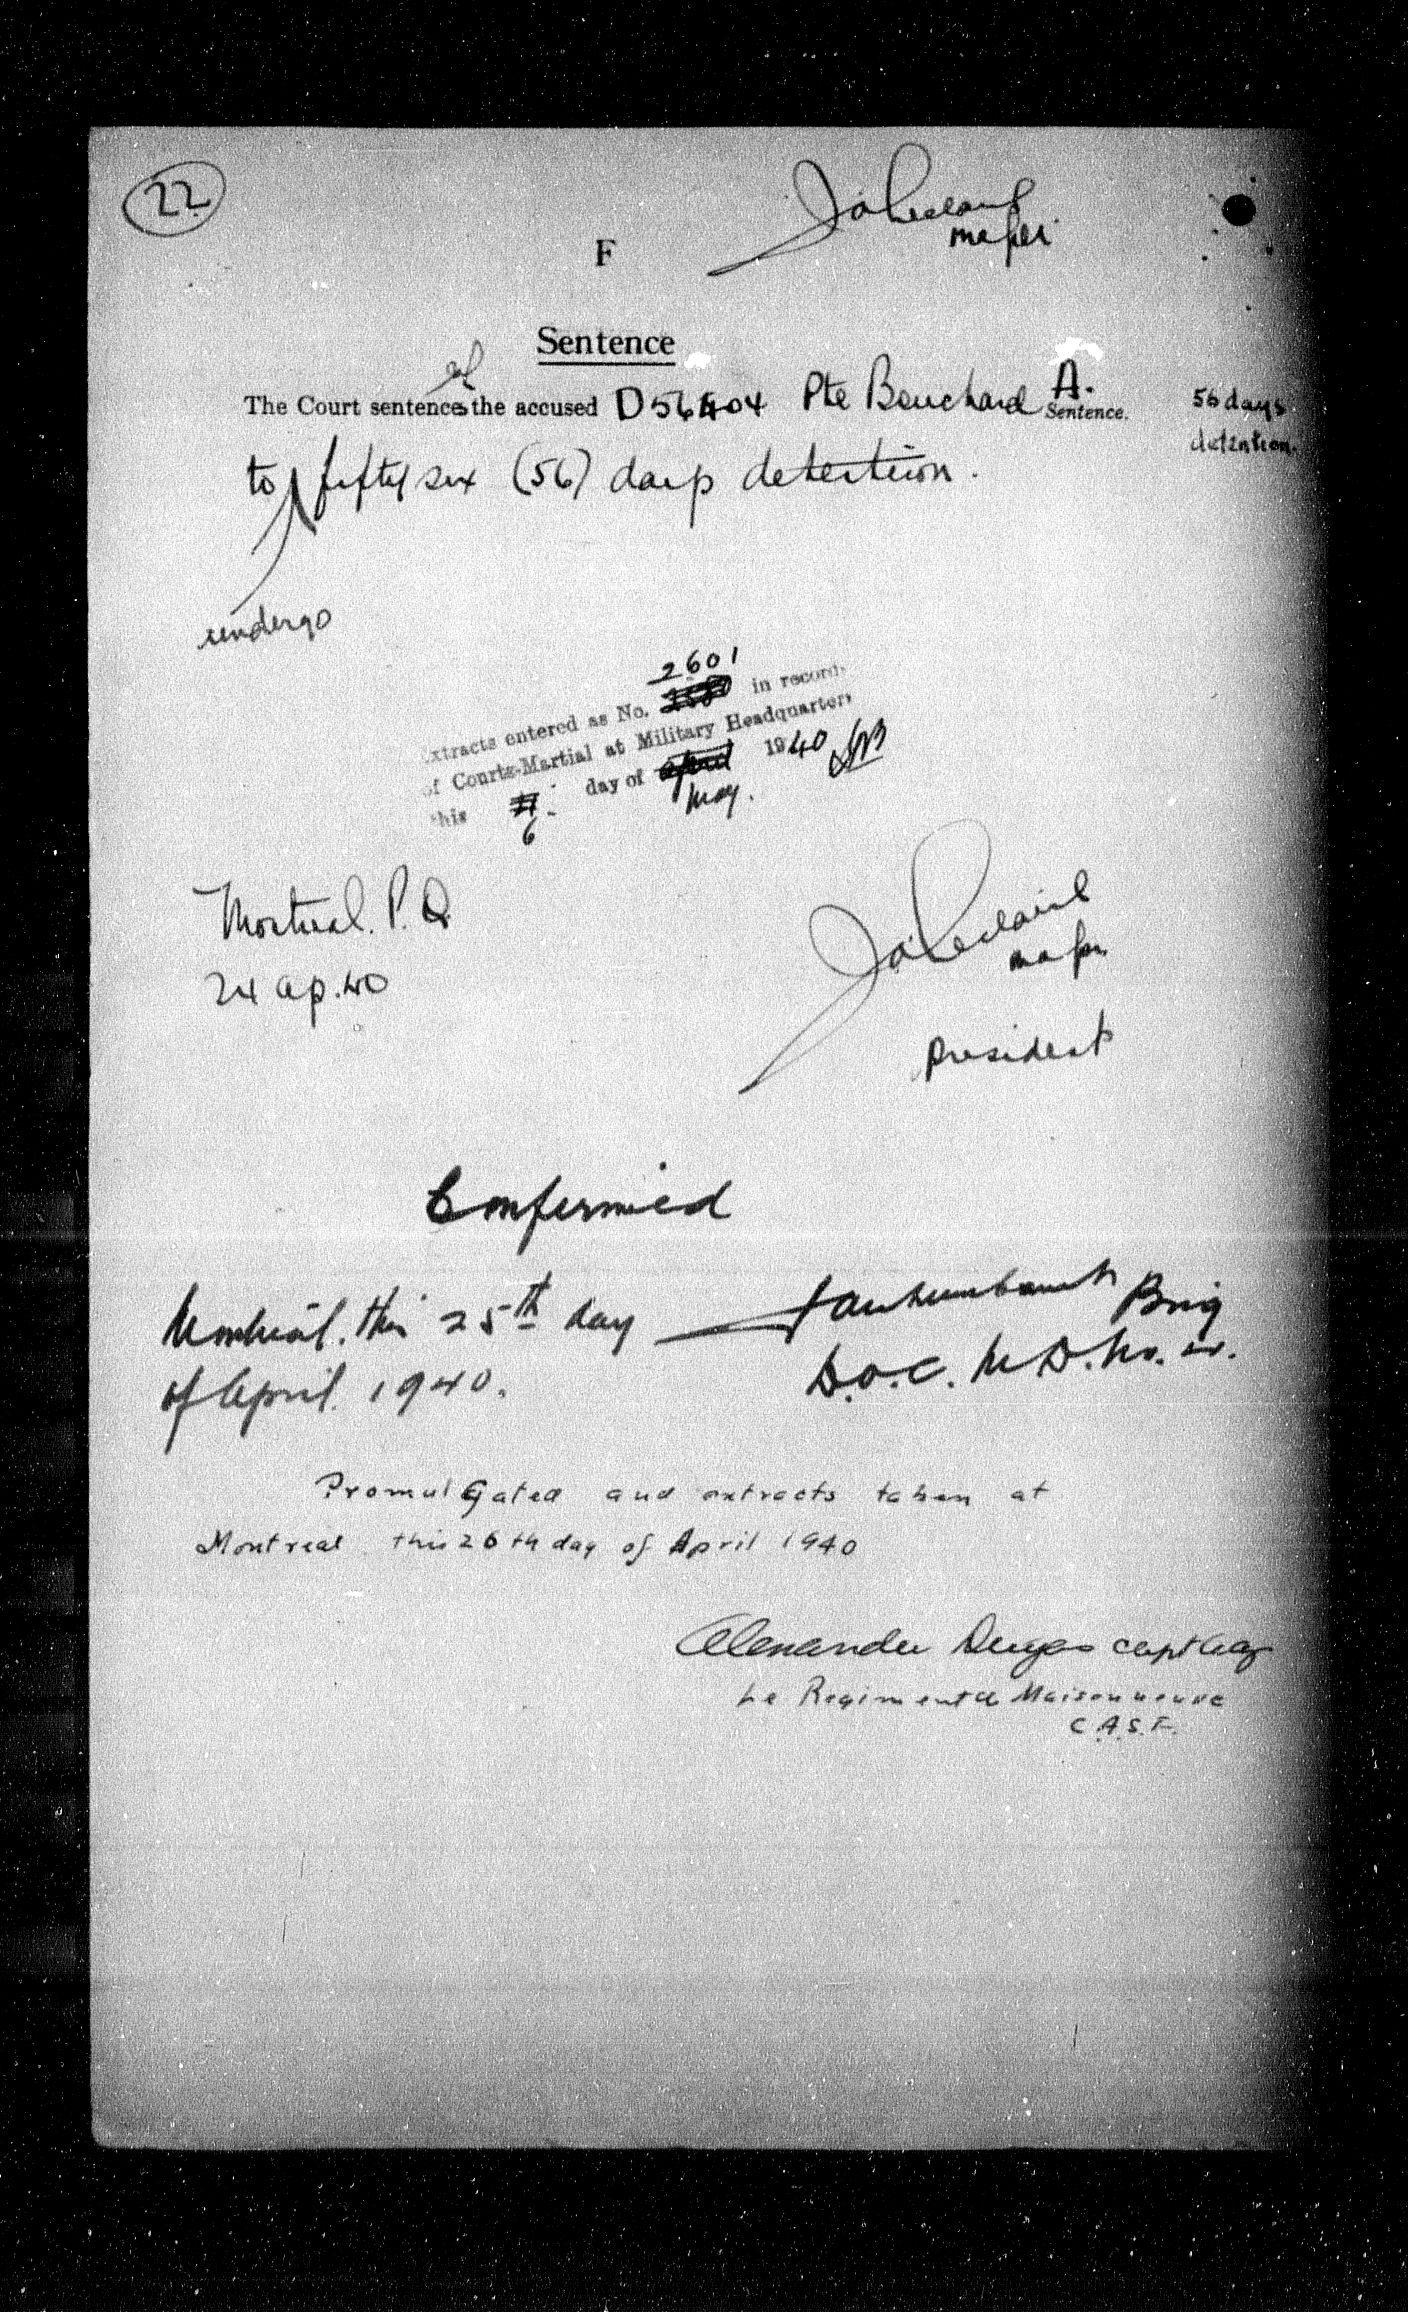 22
Major
F
Sentence
The Court sentences the accused D56404 Pte Bouchard A. Sentence. 56 days
detention.
to undergo fifty six (56) days detention.
2601
Extracts entered as No. in records
of Courts-Martial at Military Headquarters
this 6 day of April May. 1940
Montreal. P.Q
24 ap. 40
Major
President
Confirmed
Montreal. this 25th day Brig
of April. 1940. D.O.C. M.D. No. 4.
Promulgated and extracts taken at
Montreal this 26th day of April 1940
Alexander Dugas capt
Le Regiment de Maisonneuve
C.A.S.F.